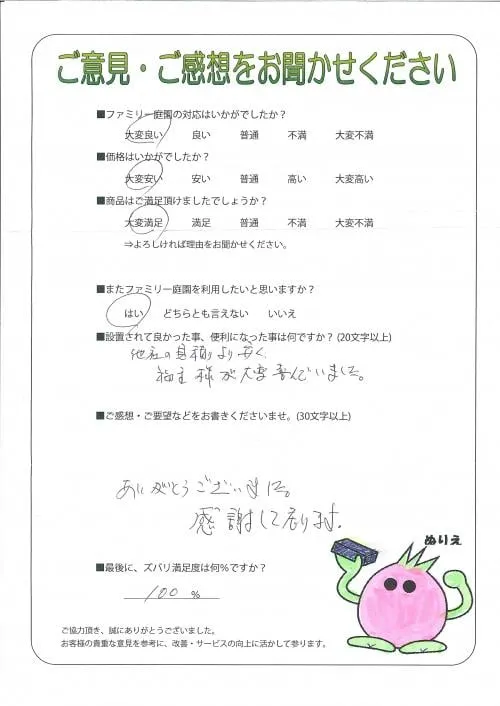 ご意見・ご感想をお聞かせください
■ファミリー庭園の対応はいかがでしたか？
大変良い 良い 普通 不満 大変不満
■価格はいかがでしたか？
大変安い 安い 普通 高い 大変高い
■商品はご満足頂けましたでしょうか？
大変満足 満足 普通 不満 大変不満
⇒よろしければ理由をお聞かせください。
■またファミリー庭園を利用したいと思いますか？
はい どちらとも言えない いいえ
■設置されて良かった事、便利になった事は何ですか？(20文字以上)
他社の見積りより安く、
施主様が大変喜んでいました。
■ご感想・ご要望などをお書きくださいませ。(30文字以上)
ありがとうございました。
感謝して居ります。
ぬりえ
■最後に、ズバリ満足度は何%ですか？
100 %
ご協力頂き、誠にありがとうございました。
お客様の貴重な意見を参考に、改善・サービスの向上に活かして参ります。